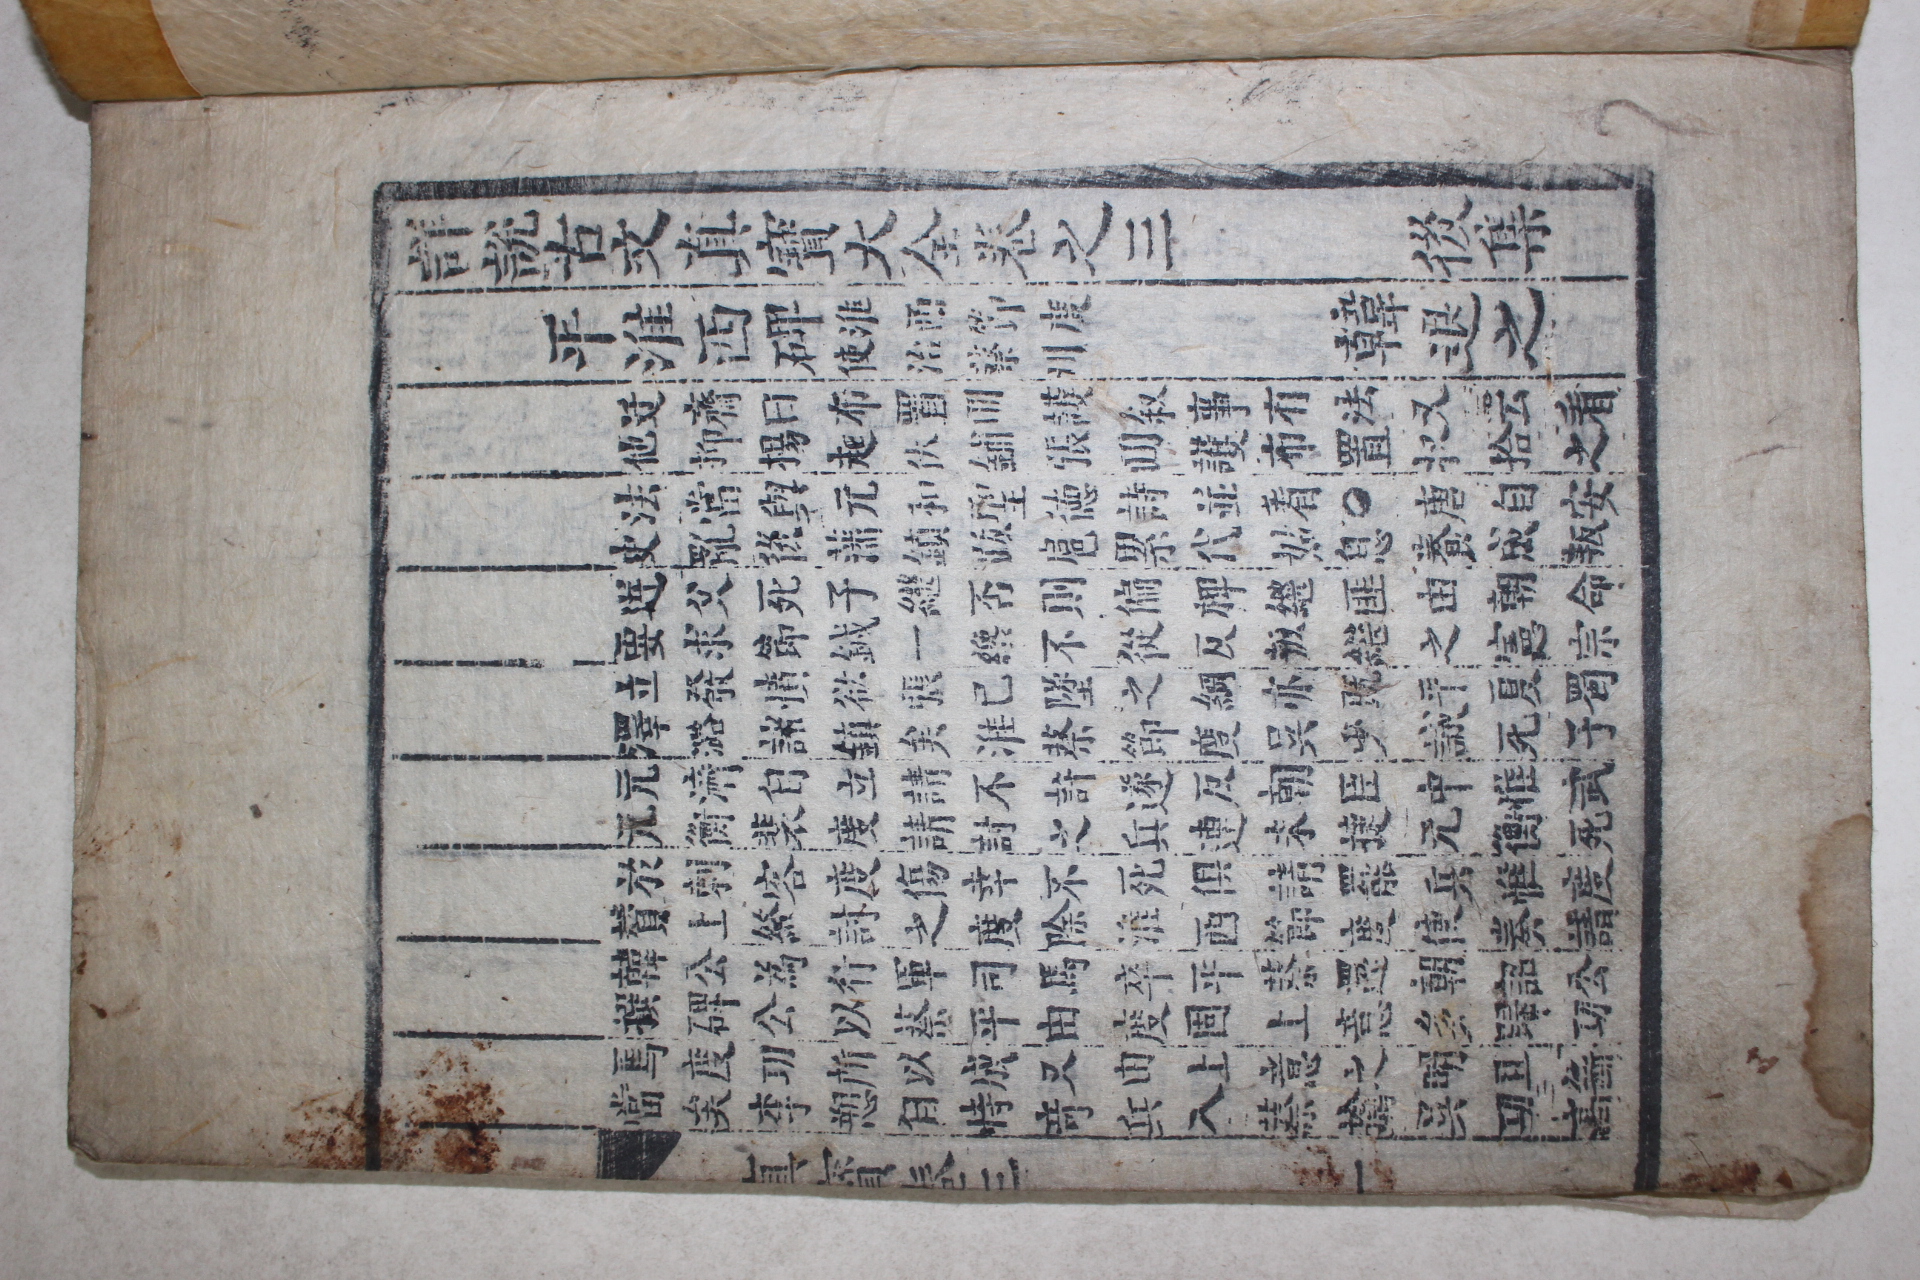 詳說古文真寶大全卷之三 後集
平淮西碑 淮西節度
使治蔡州 韓退之
迂齋曰布置回護叙事有法又云看
他抑揚起伏鋪張回護布置收拾之
法當與元和聖德詩並看○唐自安
史亂後藩鎮跋扈累代姑息養成叛
逆父死子繼否則偏裨繼匪由朝命
要求節鉞一纔不從反叛繼之憲宗
立發憤欲張已墜之綱亦既平夏蜀
澤潞諸鎮矣淮蔡節度吳少誠死子
元濟自立請不許遂反朝臣中惟武
元衡裴度請討之兵連未捷元衡死
於刺客度傷幸不死俱請罷兵惟度
贊上終討之度除淮西節度使奏請
韓公為行軍司馬卒平蔡還朝詔公
撰碑公以蔡平由度固上意多歸功
焉度功所以成又由上意之明且斷
當矣李愬自恃奇兵入蔡擒吳功高
真寶卷三 一